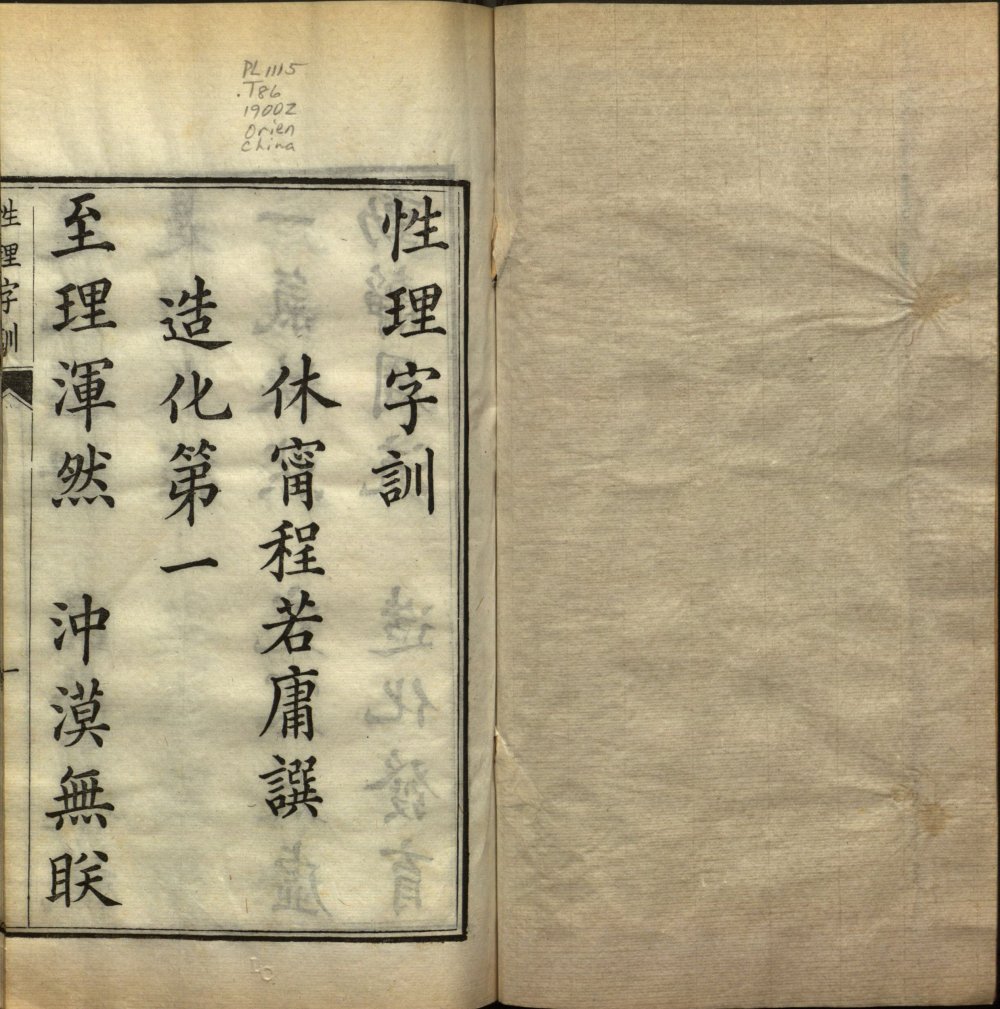 PL 1115
.T86
1900Z
Orien
China
性理字訓
休甯程若庸譔
造化第一
至理渾然　沖漠無眹
性理字訓
一